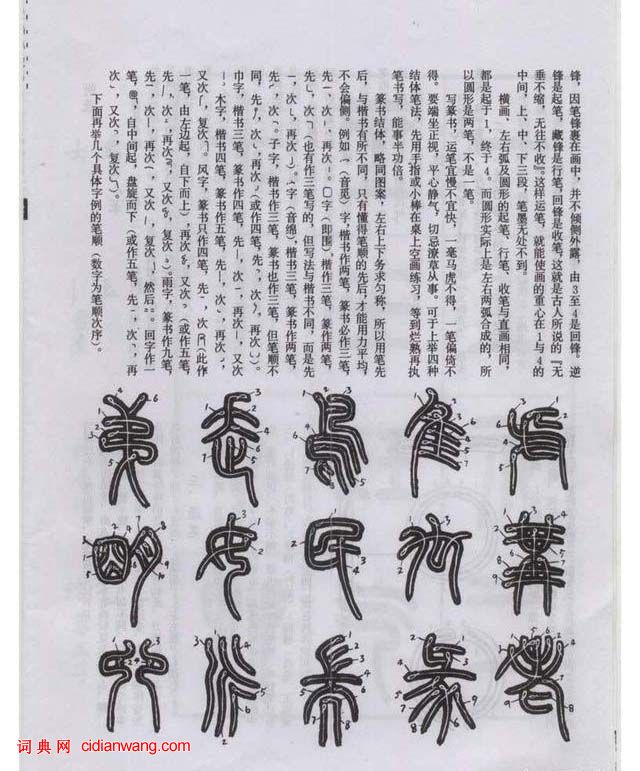 锋，因笔锋裹在画中，并不倾侧外露，由3至4是回锋。逆
锋是起笔，藏锋是行笔，回锋是收笔，这就是古人所说的『无
垂不缩，无往不收』。这样运笔，就能使画的重心在1与4的
中间，上、中、下三段，笔墨无处不到。
横画、左右弧及圆形的起笔、行笔、收笔与直画相同，
都是起于1，终于4。而圆形实际上是左右两弧合成的，所
以圆形是两笔，不是一笔。
写篆书，运笔宜慢不宜快，一毫马虎不得，一笔偏倚不
得。要端坐正视，平心静气，切忌潦草从事。可于上举四种
结体笔法，先用手指或小棒在桌上空画练习，等到烂熟再执
笔书写，能事半功倍。
篆书结体，略同图案，左右上下务求匀称，所以用笔先
后，与楷书有所不同，只有懂得笔顺的先后，才能用力平均，
不会偏侧。例如
（音觅）字，楷书作两笔，篆书必作三笔，
先
次
也有作三笔写的，但写法与楷书不同，而是先
次
再次
字（即围），楷作三笔，篆作两笔，
先
次
字（音绵）楷书三笔，篆书作两笔，
先
次
子字，楷书作三笔，篆书也作三笔，但笔顺不
同，先
次
再次
（或作四笔，先
次
再次
）。
巾字，楷书三笔，篆书作四笔，先
次
再次
又次
木字，楷书四笔，篆书作五笔，先
次
再次
又次
复次
风字，篆书只作四笔，先
次
（此作
一笔，由左边起，自下而上），再次
又次
（或作五笔，
先
次
再次
又次
复次
）。雨字，篆书作九笔，
先
次
再次
又次
复次
然后
回字作一
笔，
自中间起，盘旋而下（或作五笔，先
次
再
次
又次
复次
）。
下面再举几个具体字例的笔顺（数字为笔顺次序）。
词典网 cidianwang.com